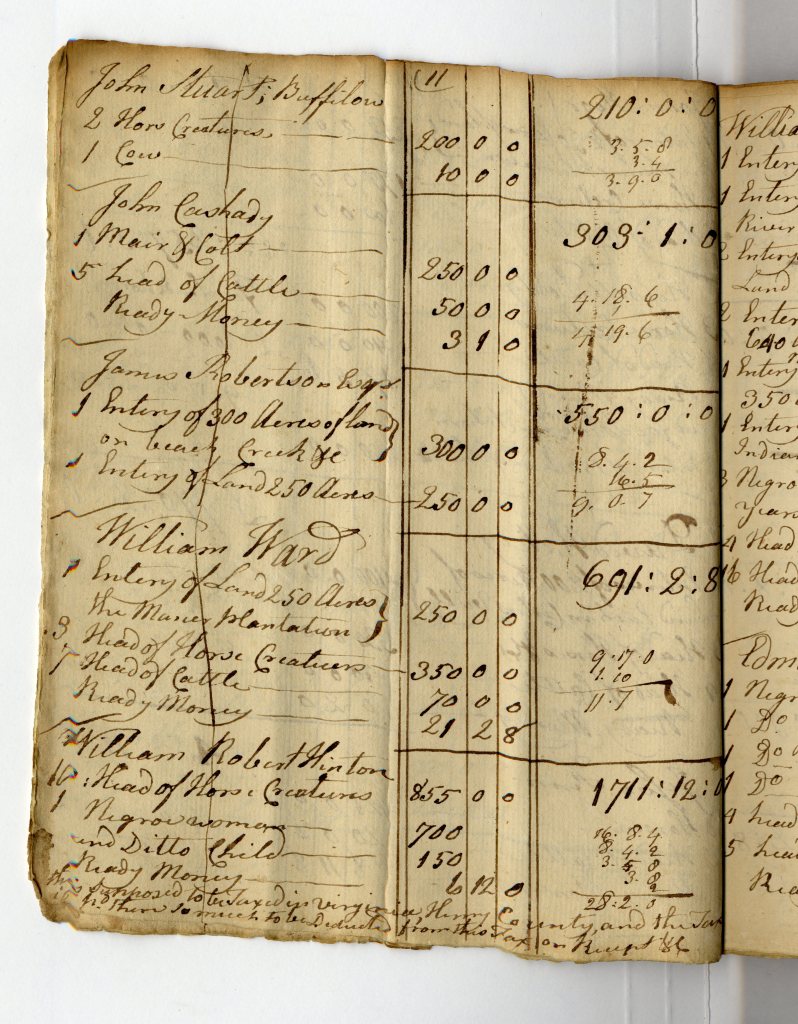 (11
John Stuart; Buffilow 210:0:0
2 Hors Creatures 200 0 0 3.5.8
1 Cow 10 0 0 3.4
3.9.0
John Cashady 303:1:0
1 Mair & Colt 250 0 0
5 head of Cattle 50 0 0 4.18.6
Ready Money 3 1 0 4.19.6
James Robertson Esqr 550:0:0
1 Entery of 300 Acres of land
on beach Creek &c 300 0 0 8.4.2
1 Entery of Land 250 Acres 250 0 0 16.5
9.0.7
William Ward 691:2:8
1 Entery of Land 250 Acres
the Maner plantation 250 0 0
3 Head of Horse Creatuers 350 0 0 9.17.0
7 Head of Cattle 70 0 0 1.10
Ready Money 21 2 8 11.7
William Robert Hinton 1711:12:0
16: Head of Horse Creatures 855 0 0
1 Negrow woman 700 16.8.4
and Ditto Child 150 8.4.2
Ready Money 6 12 0 3.5.8
3.8
2
28.2.0
this Supposed to be Taxed in virginia, Henry County, and the Tax
if there so much to be Deducted from this Tax on Receipt &c
Willia
1 Entery
1 Entery
River
2 Entery
Land
2 Enter
640
1 Entery
350
1 Entery
Indian
3 Negro
years
4 Head
16 Head
Ready
Edm
1 Negr
1 Do
1 Do
1 Do
4 head
5 head
Rea